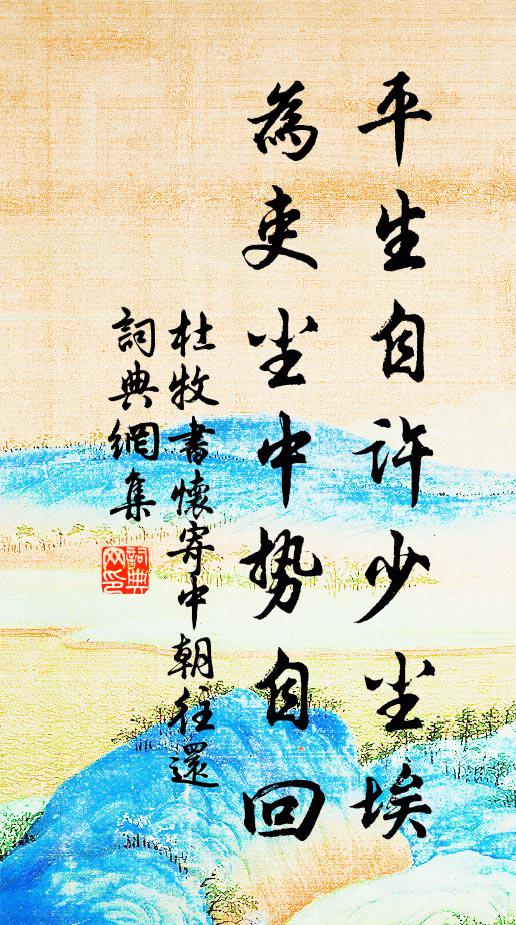 平生自许少尘埃
為吏尘中势自回
杜牧書懷寄中朝往還
詞典網集
詞典网印